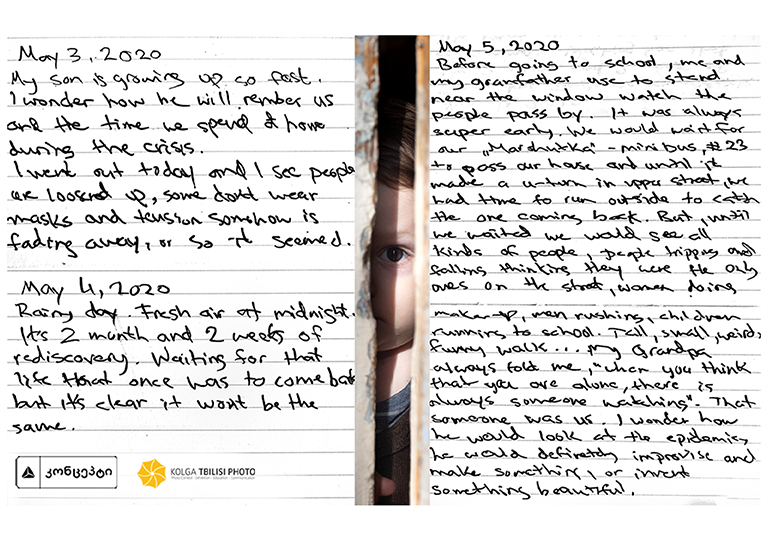 May 3, 2020
My son is growing up so fast.
I wonder how he will rember us
and the time we spend @ home
during the crisis.
I went out today and I see people
are loosend up, some dont wear
masks and tension somehow is
fading away, or so it seemed.
May 4, 2020
Rainy day. Fresh air at midnight.
It's 2 month and 2 weeks of
rediscovery. Waiting for that
life that once was to come back
but it's clear it wont be the
same.
კონცეპტი
KOLGA TBILISI PHOTO
Photo Contest · Exhibition · Education · Communication
May 5, 2020
Before going to school, me and
my grandfather use to stand
near the window watch the
people pass by. It was always
super early. We would wait for
our „Marshutka" - minibus, #23
to pass our house and until it
made a u-turn in uppa street, we
had time to run outside to catch
the one coming back. But, until
we waited we would see all
kinds of people, people tripping and
falling thinking they were the only
ones on the street, women doing
make-up, men rushing, children
running to school. Tall, small, weird,
funny walk... My Grandpa
always told me, "when you think
that you are alone, there is
always someone watching". That
someone was us. I wonder how
he would look at the epidemic,
he would definetely improvise and
make something, or invent
something beautiful.